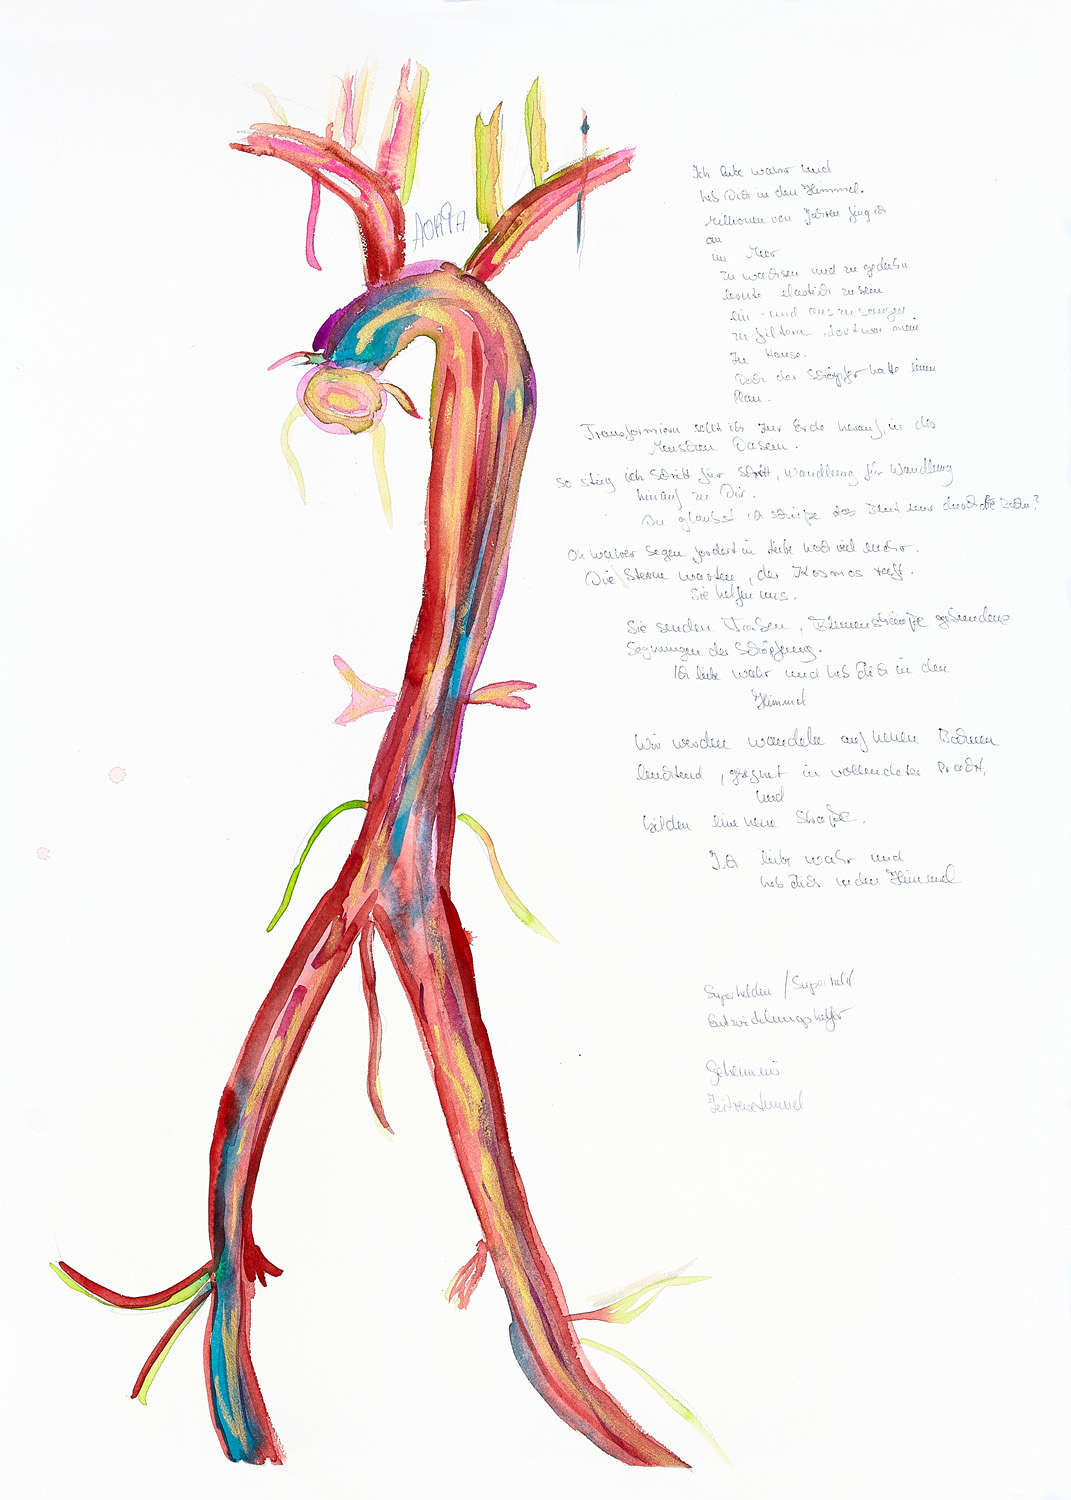 AORTA
Ich liebe wahr und
heb Dich in den Himmel.
Millionen von Jahren fing ich
an
im Meer
zu wachsen und zu gedeihn
lernte elastisch zu sein
ein - und auszusaugen
zu filtern, dort war mein
Zu Hause.
Doch der Schöpfer hatte einen
Plan.
Transformieren sollt ich zur Erde herauf, in des
Menschen Dasein.
so stieg ich Schritt für Schritt, Wandlung für Wandlung
hinauf zu Dir.
Du glaubst ich schiepe das Blut nur durch die Bahn?
Oh wahrer Segen fordert in Liebe noch viel mehr.
Die Sterne warten, der Kosmos ruft.
Sie helfen uns.
Sie senden Farben, Blumensträuße gebundene
Segnungen der Schöpfung.
Ich liebe wahr und heb Dich in den
Himmel
Wir werden wandeln auf neuen Bahnen
leuchtend, gesegnet in vollendeter Pracht,
und
bilden eine neue Straße.
Ich liebe wahr und
heb Dich in den Himmel
Superhelden / Superheld
Entwicklungshelfer
Geheimnis